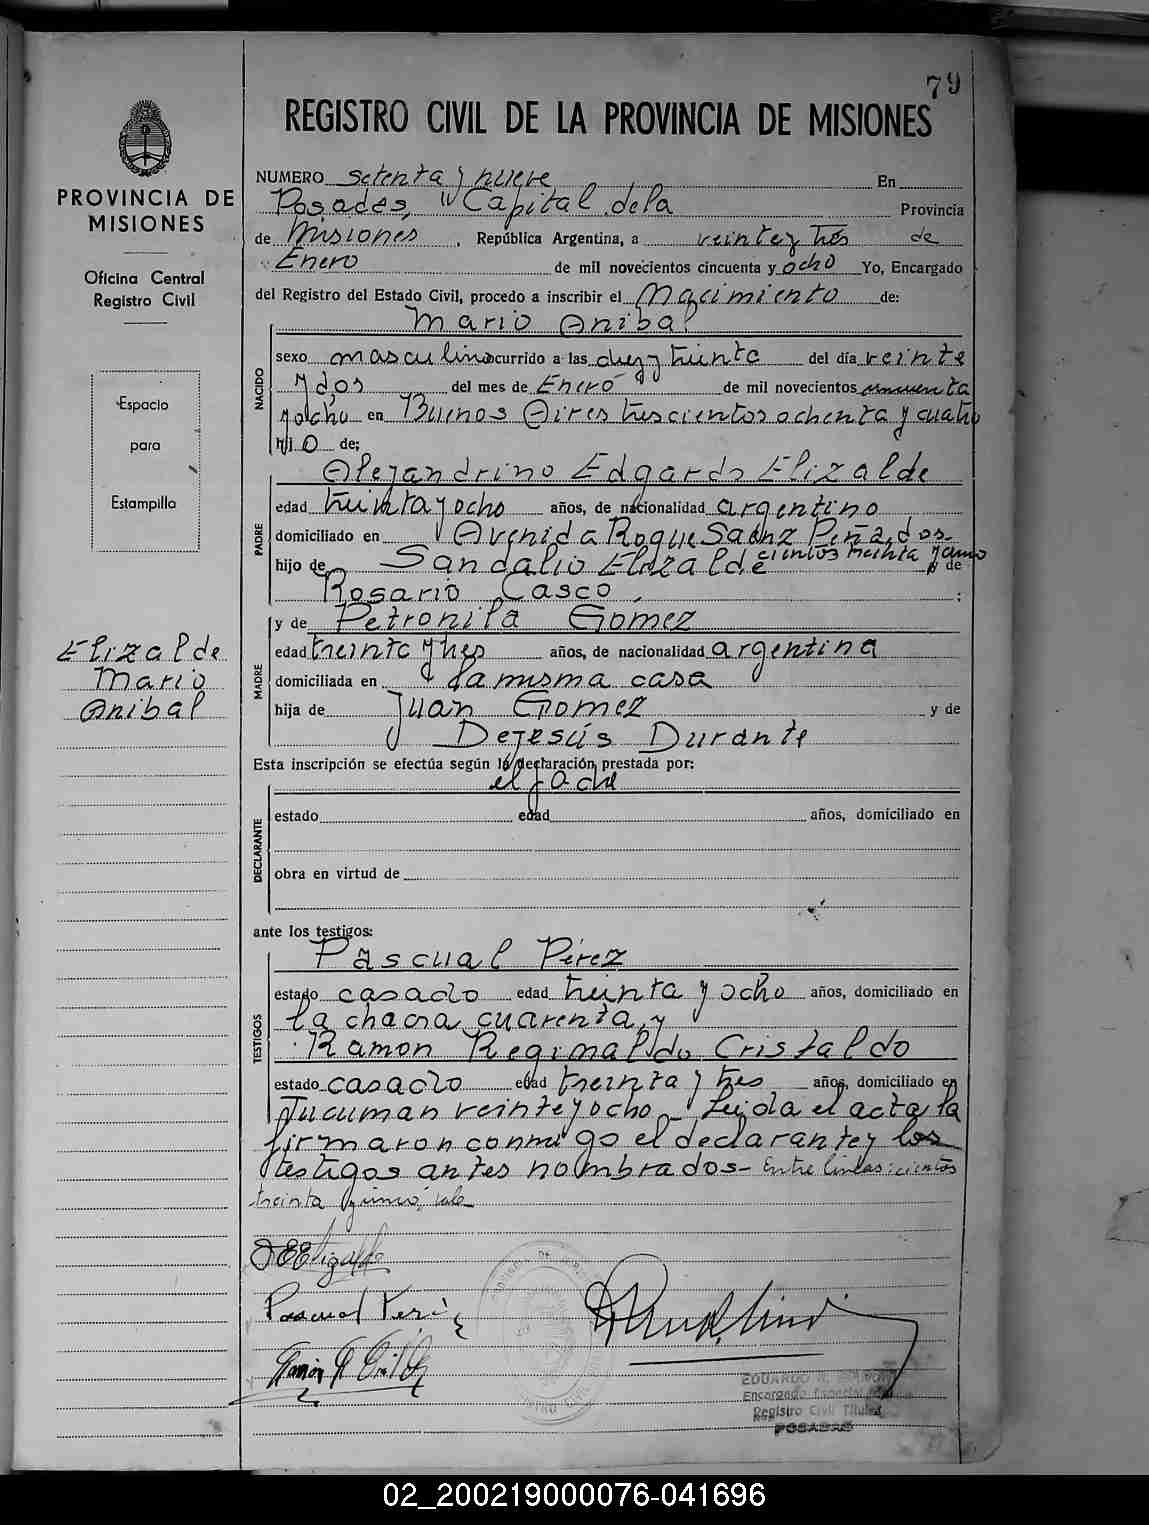 79
REGISTRO CIVIL DE LA PROVINCIA DE MISIONES
PROVINCIA DE
MISIONES
Oficina Central
Registro Civil
Espacio
para
Estampilla
Elizalde
Mario
Anibal
NUMERO setenta y nueve En
Posadas, Capital de la Provincia
de Misiones, República Argentina, a veinte y trés de
Enero de mil novecientos cincuenta y ocho Yo, Encargado
del Registro del Estado Civil, procedo a inscribir el Nacimiento de:
NACIDO
Mario Anibal
sexo masculino ocurrido a las diez y treinta del día veinte
y dos del mes de Enero de mil novecientos cincuenta
y ocho en Buenos Aires trescientos ochenta y cuatro
hijo de;
PADRE
Alejandrino Edgardo Elizalde
edad treinta y ocho años, de nacionalidad argentino
domiciliado en Avenida Roque Saenz Peña, dos-
cientos treinta y uno
hijo de Sandalio Elizalde y de
Rosario Casco ;
y de Petronila Gomez
MADRE
edad treinta y tres años, de nacionalidad argentina
domiciliada en la misma casa
hija de Juan Gomez y de
Dejesús Durante
Esta inscripción se efectúa según la declaración prestada por:
el padre
DECLARANTE
estado edad años, domiciliado en
obra en virtud de
ante los testigos:
TESTIGOS
Pascual Pérez
estado casado edad treinta y ocho años, domiciliado en
la chacra cuarenta, y
Ramon Reginaldo Cristaldo
estado casado edad treinta y tres años, domiciliado en
Tucuman veinte y ocho. Leida el acta la
firmaron conmigo el declarante y los
testigos antes nombrados- Entre lineas: cientos
treinta y uno, vale
Elizalde
Pascual Perez
EDUARDO R.
Encargado Especial
Registro Civil Titular
POSADAS
02_200219000076-041696